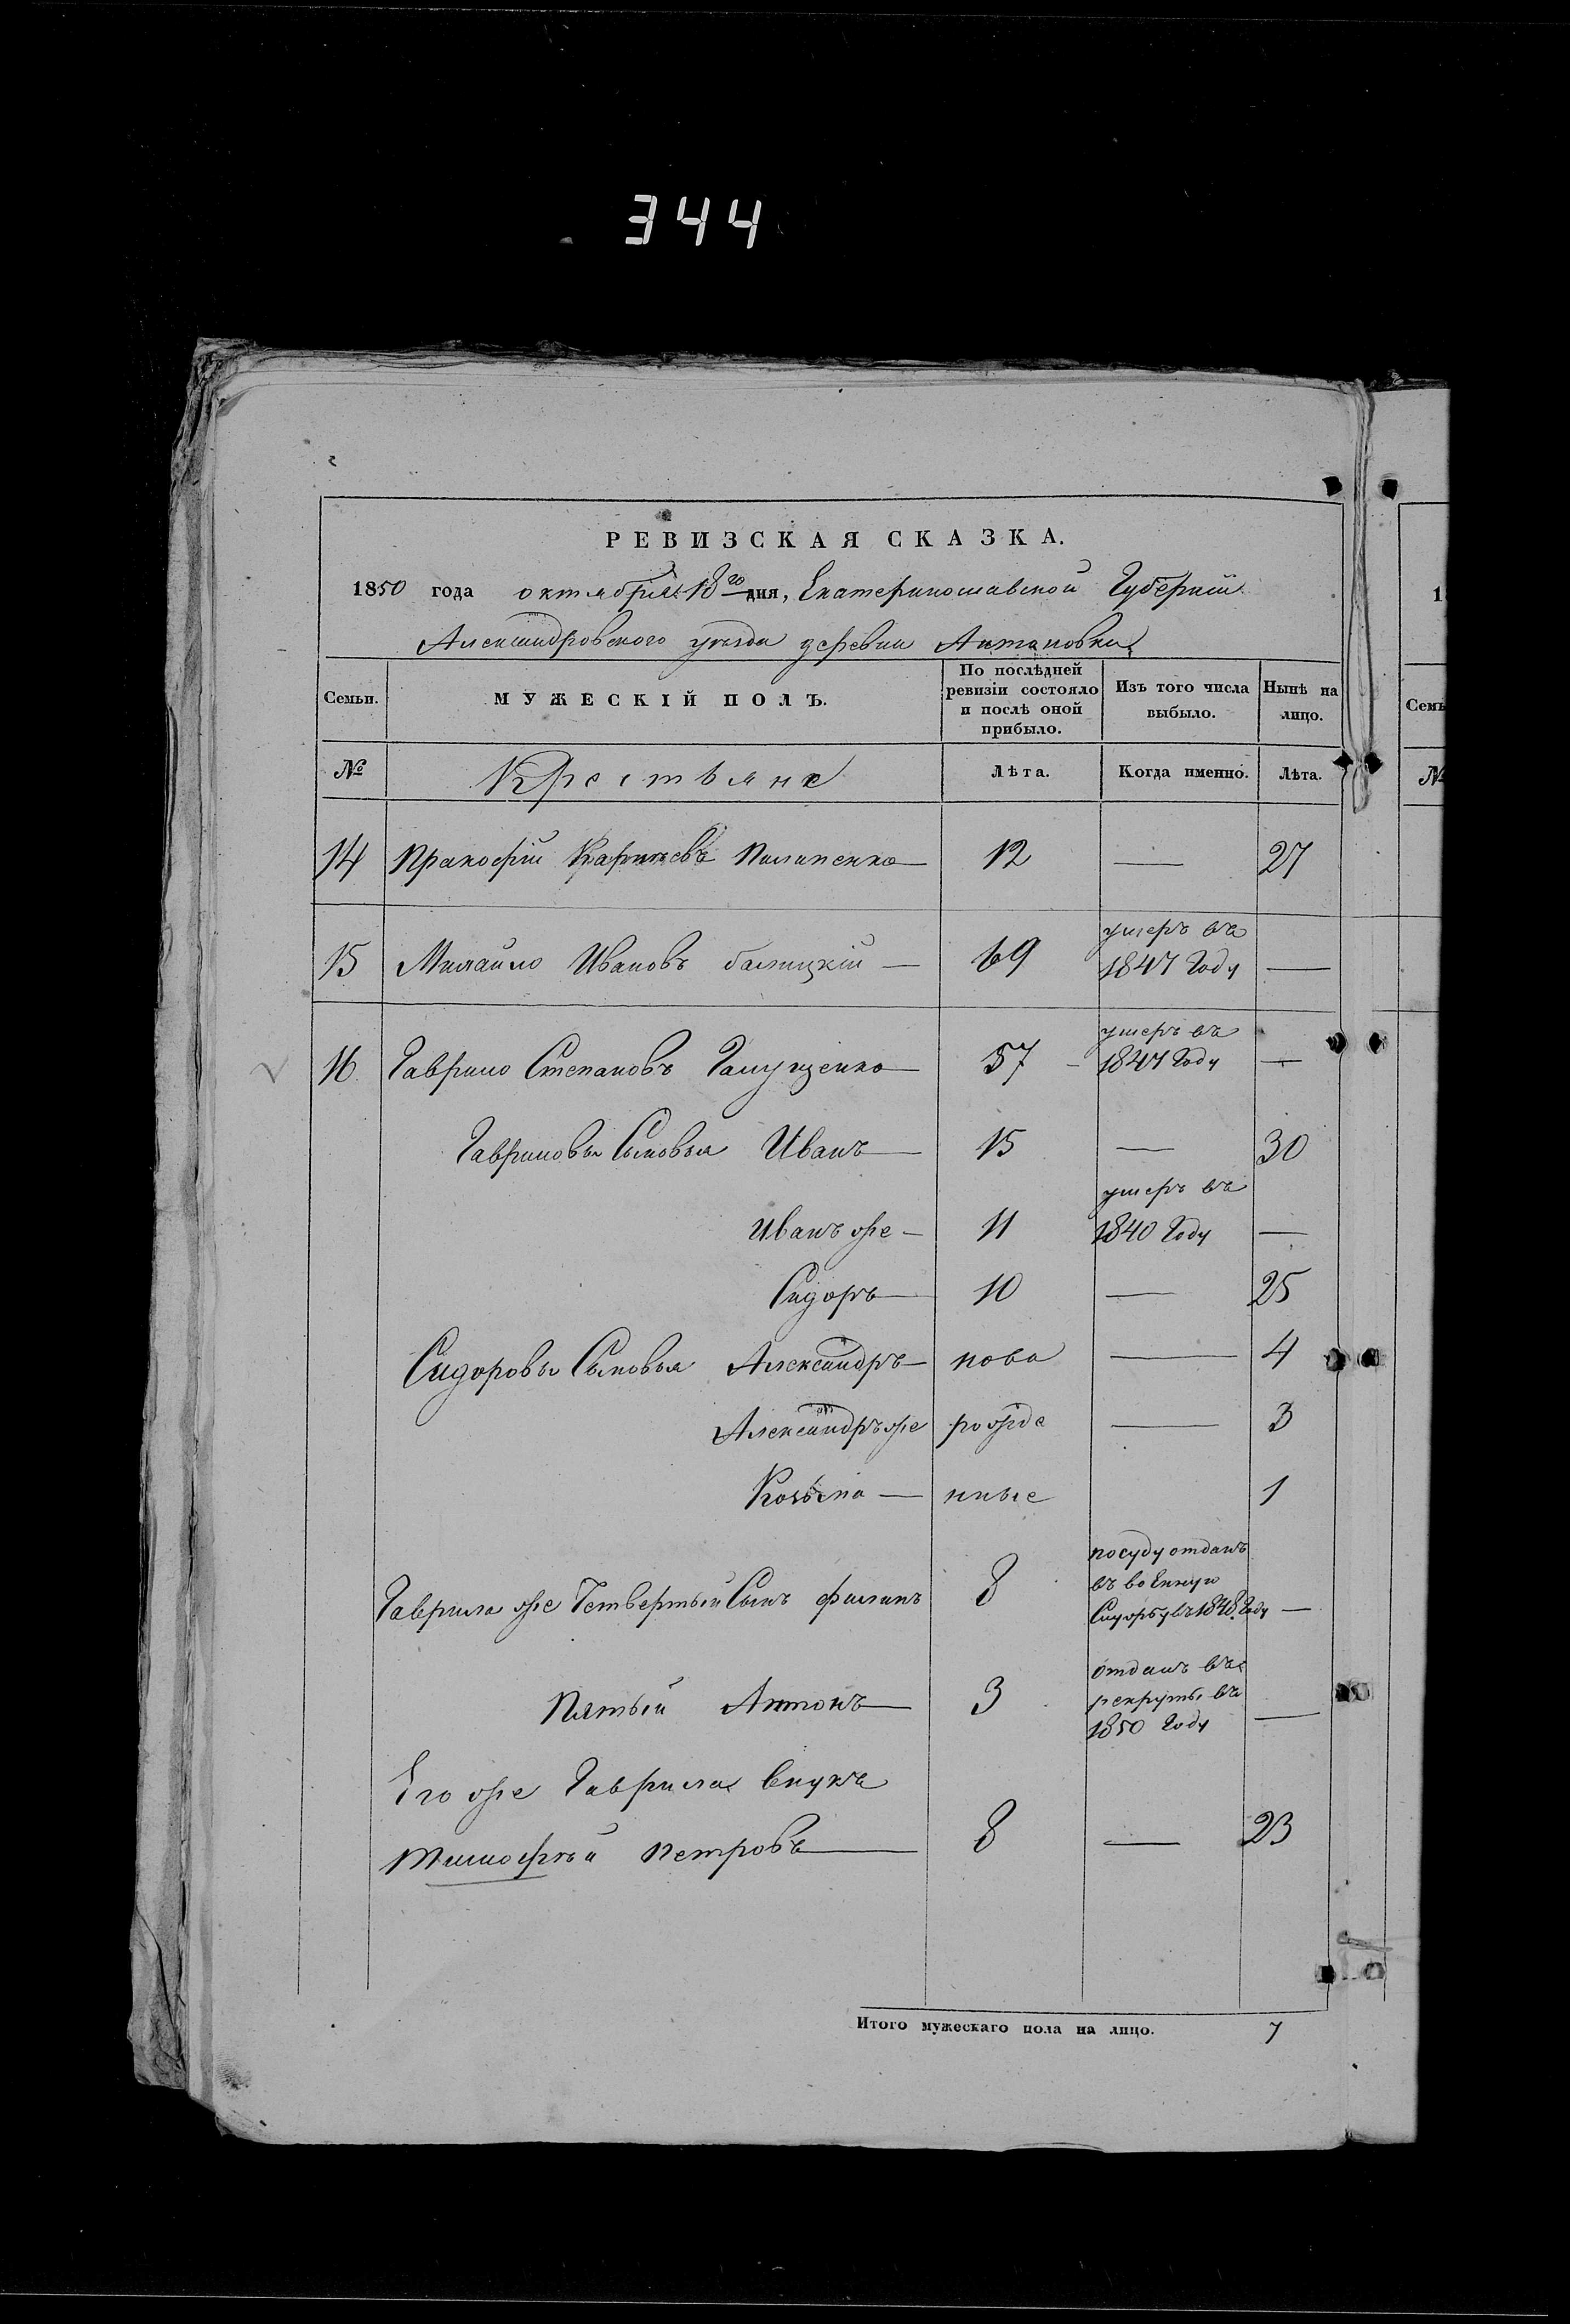 344
РЕВИЗСКАЯ СКАЗКА.
1850 года октября 18го дня, Екатеринославской Губерніи
Александровского уѣзда деревни Антановки
Семьи. МУЖЕСКІЙ ПОЛЪ. По послѣдней ревизіи состояло и послѣ оной прибыло. Изъ того числа выбыло. Нынѣ на лицо.
№ Крестьяне Лѣта. Когда именно. Лѣта.
14 Пракофій Пилипенко — 12 — 27
15 Михайло Ивановъ балицкій — 69 умеръ въ 1847 Году —
16 Гаврило Степановъ Галущенко — 57 умеръ въ 1847 Году —
Гавриловы Сыновья Иванъ — 15 — 30
Иванъ же — 11 умеръ въ 1840 Году —
Сидоръ — 10 — 25
Сидоровы Сыновья Александръ — ново — 4
Александръ же рожде — 3
Козьма — нные 1
Гаврила же Четвертый Сынъ филипъ 8 посуду отданъ въ военную Службу въ 1848 Году —
Пятый Антонъ — 3 отданъ въ рекруты въ 1850 Году —
Его же Гаврила внукъ
Тимофѣй Петровъ — 8 — 23
Итого мужескаго пола на лицо. 7
1
Семь
№